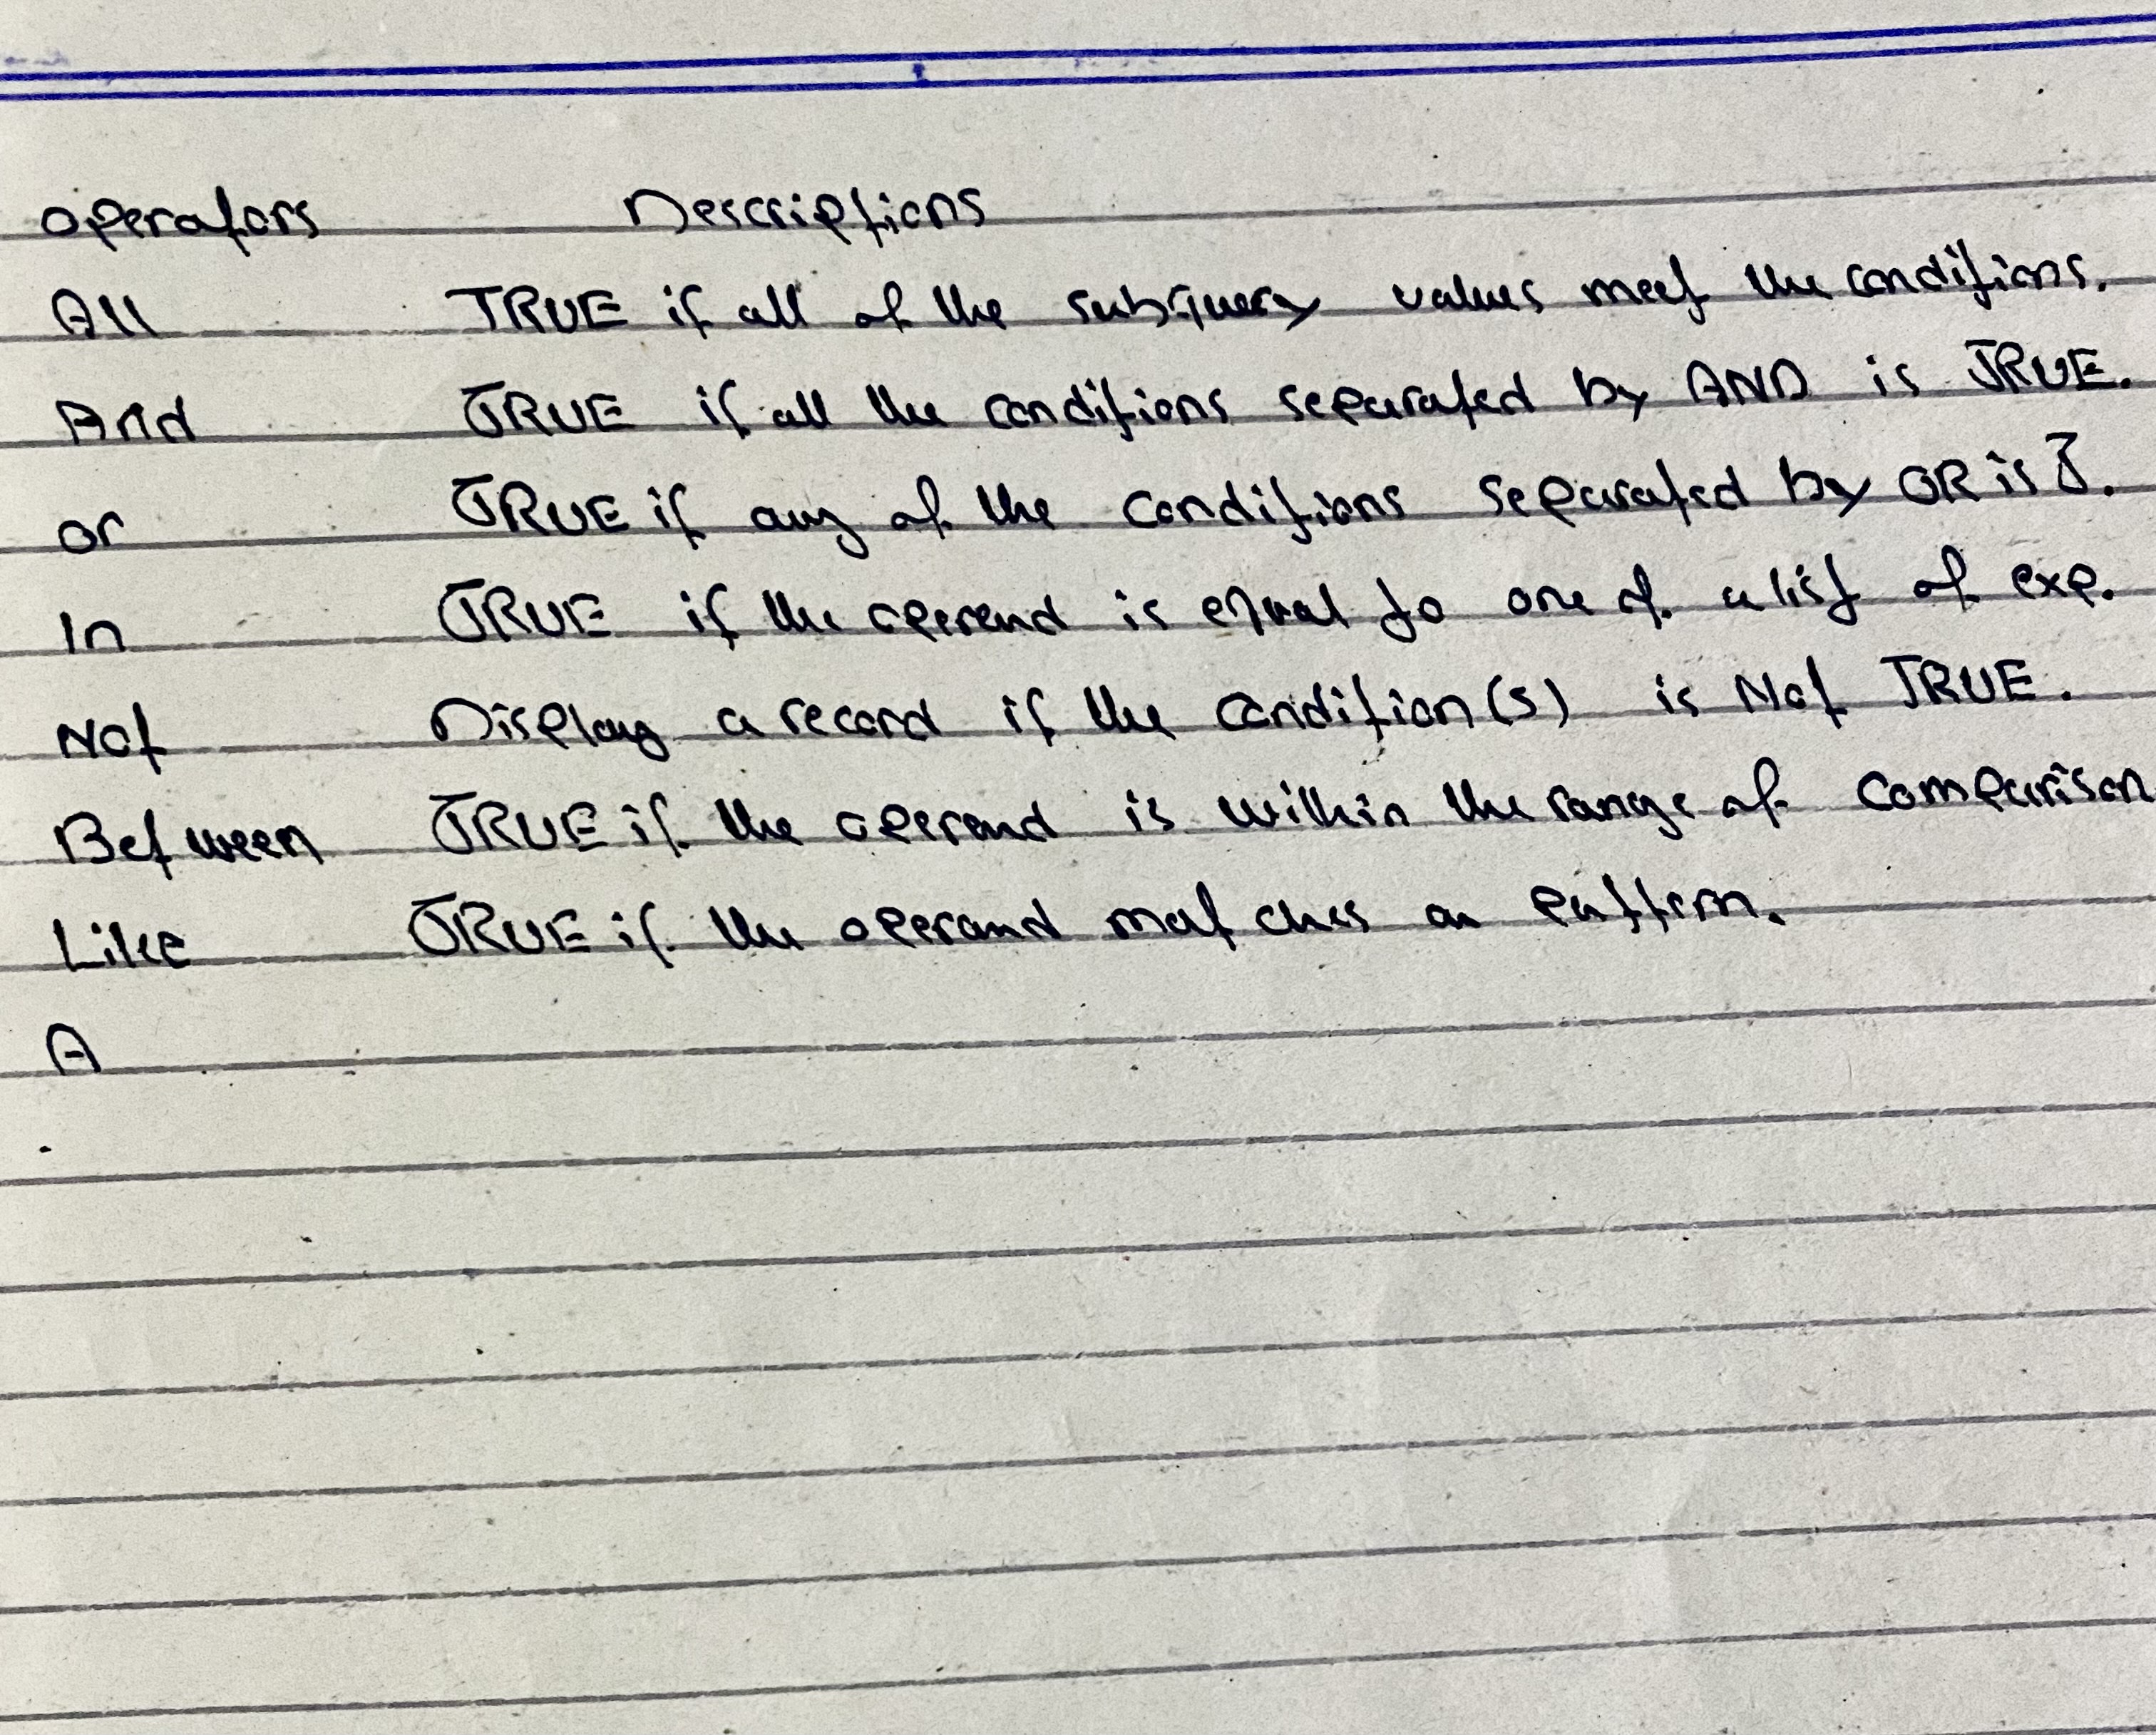 Operators Descriptions
All TRUE if all of the subquery values meet the conditions.
And TRUE if all the conditions separated by AND is TRUE.
or TRUE if any of the conditions separated by OR is T.
In TRUE if the operend is equal to one of a list of exp.
Not Display a record if the condition(s) is Not TRUE.
Between TRUE if the operend is within the range of comparison
Like TRUE if the operand matches a pattern.
A